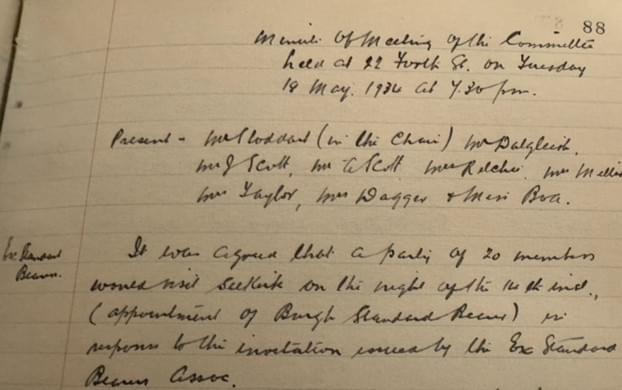 88
Minute Of Meeting of the Committee
held at 22 Forth St. on Tuesday
May. 1934 at 7.30 pm.
Present - Mr Stoddart (in the Chair) Mr Dalgleish.
Mr J Scott, Mr Scott Mrs Mrs
Mrs Taylor, Mrs Dagger & Miss Boa.
Ex Standard
Bearers.
It was agreed that a party of 20 members
would visit Selkirk on the night of the inst.,
(appointment of Burgh Standard Bearer) in
response to the invitation issued by the Ex Standard
Bearers Assoc.